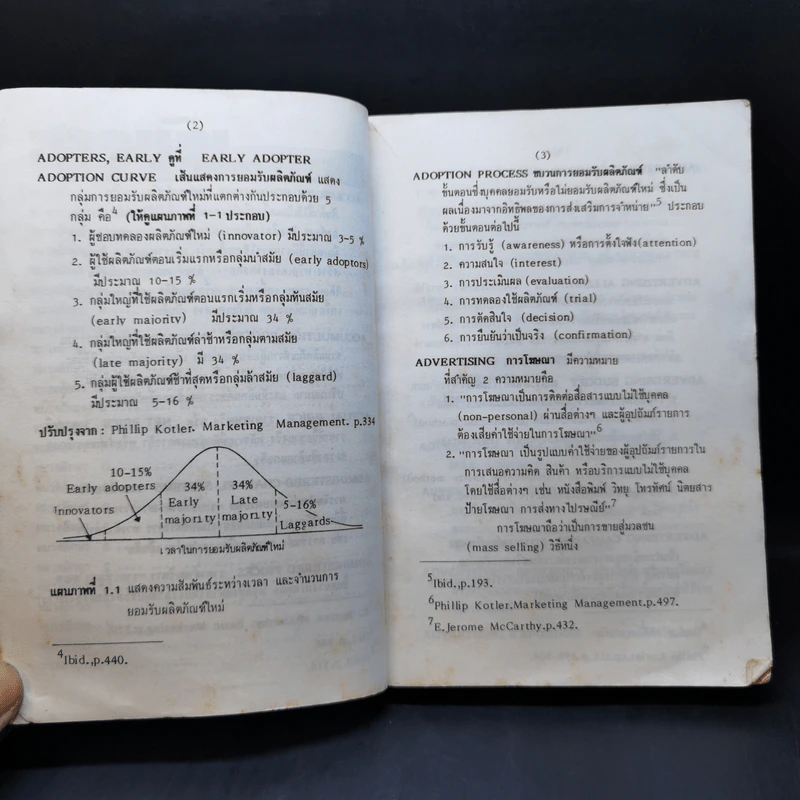 (2)
ADOPTERS, EARLY ดูที่ EARLY ADOPTER
ADOPTION CURVE เส้นแสดงการยอมรับผลิตภัณฑ์ แสดง
กลุ่มการยอมรับผลิตภัณฑ์ใหม่ที่แตกต่างกันประกอบด้วย 5
กลุ่ม คือ4 (ให้ดูแผนภาพที่ 1-1 ประกอบ)
1. ผู้ชอบทดลองผลิตภัณฑ์ใหม่ (innovator) มีประมาณ 3-5 %
2. ผู้ใช้ผลิตภัณฑ์ตอนเริ่มแรกหรือกลุ่มนำสมัย (early adoptors)
มีประมาณ 10-15 %
3. กลุ่มใหญ่ที่ใช้ผลิตภัณฑ์ตอนแรกเริ่มหรือกลุ่มทันสมัย
(early maiority) มีประมาณ 34 %
4. กลุ่มใหญ่ที่ใช้ผลิตภัณฑ์ล่าช้าหรือกลุ่มตามสมัย
(late majority) มี 34 %
5. กลุ่มผู้ใช้ผลิตภัณฑ์ช้าที่สุดหรือกลุ่มล้าสมัย (laggard)
มีประมาณ 5-16 %
ปรับปรุงจาก: Phillip Kotler. Marketing Management. p.334
10-15%
Early adopters
Innovators
34%
Early
majority
34%
Late
majority
5-16%
Laggards
เวลาในการยอมรับผลิตภัณฑ์ใหม่
แผนภาพที่ 1.1 แสดงความสัมพันธ์ระหว่างเวลา และจำนวนการ
ยอมรับผลิตภัณฑ์ใหม่
4Ibid.,p.440.
(3)
ADOPTION PROCESS ขบวนการยอมรับผลิตภัณฑ์ "ลำดับ
ขั้นตอนซึ่งบุคคลยอมรับหรือไม่ยอมรับผลิตภัณฑ์ใหม่ ซึ่งเป็น
ผลเนื่องมาจากอิทธิพลของการส่งเสริมการจำหน่าย"5 ประกอบ
ด้วยขั้นตอนต่อไปนี้
1. การรับรู้ (awareness) หรือการตั้งใจฟัง(attention)
2. ความสนใจ (interest)
3. การประเมินผล (evaluation)
4. การทดลองใช้ผลิตภัณฑ์ (trial)
5. การตัดสินใจ (decision)
6. การยืนยันว่าเป็นจริง (confirmation)
ADVERTISING การโฆษณา มีความหมาย
ที่สำคัญ 2 ความหมายคือ
1. "การโฆษณาเป็นการติดต่อสื่อสารแบบไม่ใช้บุคคล
(non-personal) ผ่านสื่อต่างๆ และผู้อุปถัมภ์รายการ
ต้องเสียค่าใช้จ่ายในการโฆษณา"6
2. "การโฆษณา เป็นรูปแบบค่าใช้จ่ายของผู้อุปถัมภ์รายการใน
การเสนอความคิด สินค้า หรือบริการแบบไม่ใช้บุคคล
โดยใช้สื่อต่างๆ เช่น หนังสือพิมพ์ วิทยุ โทรทัศน์ นิตยสาร
ป้ายโฆษณา การส่งทางไปรษณีย์"7
การโฆษณาถือว่าเป็นการขายสู่มวลชน
(mass selling) วิธีหนึ่ง
5Ibid.,p.193.
6Phillip Kotler.Marketing Management.p.497.
7E.Jerome McCarthy.p.432.